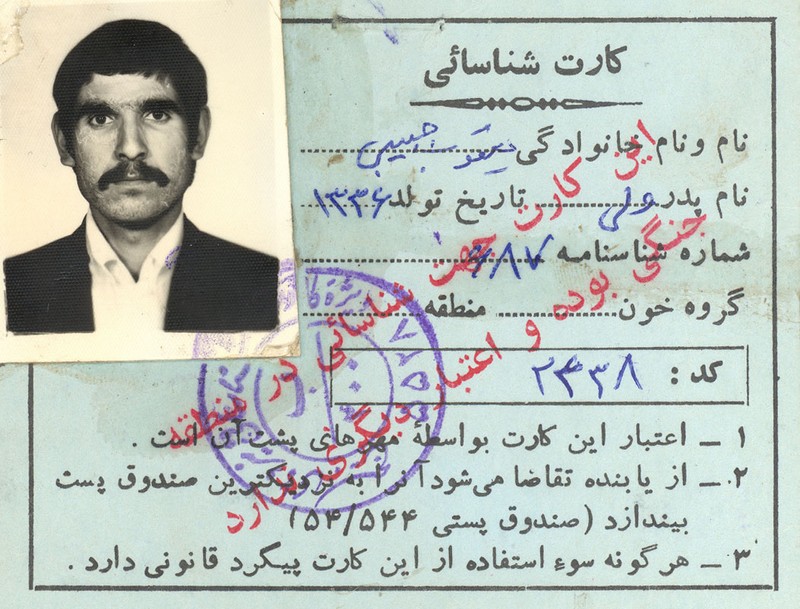 کارت شناسائی
نام و نام خانوادگی یعقوب حبیبی
نام پدر ولی تاریخ تولد ۱۳۳۶
شماره شناسنامه ۶۸۷
گروه خون منطقه
کد : ۲۴۳۸
۱ ــ اعتبار این کارت بواسطهٔ مهرهای پشت آن است .
۲ ــ از یابنده تقاضا می‌شود آنرا به نزدیکترین صندوق پست
بیندازد (صندوق پستی ۵۴/۵۴۴)
۳ ــ هر گونه سوء استفاده از این کارت پیگرد قانونی دارد .
این کارت جهت شناسائی در منطقه
جنگی بوده و اعتبار دیگری ندارد